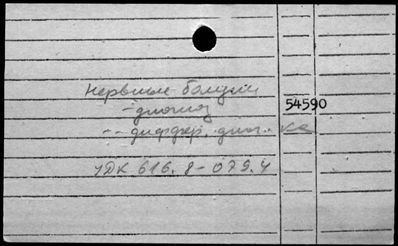 Нервные болезни
- диагноз
54590
-- диффер. диагн-ка
УДК 616.8-079.4